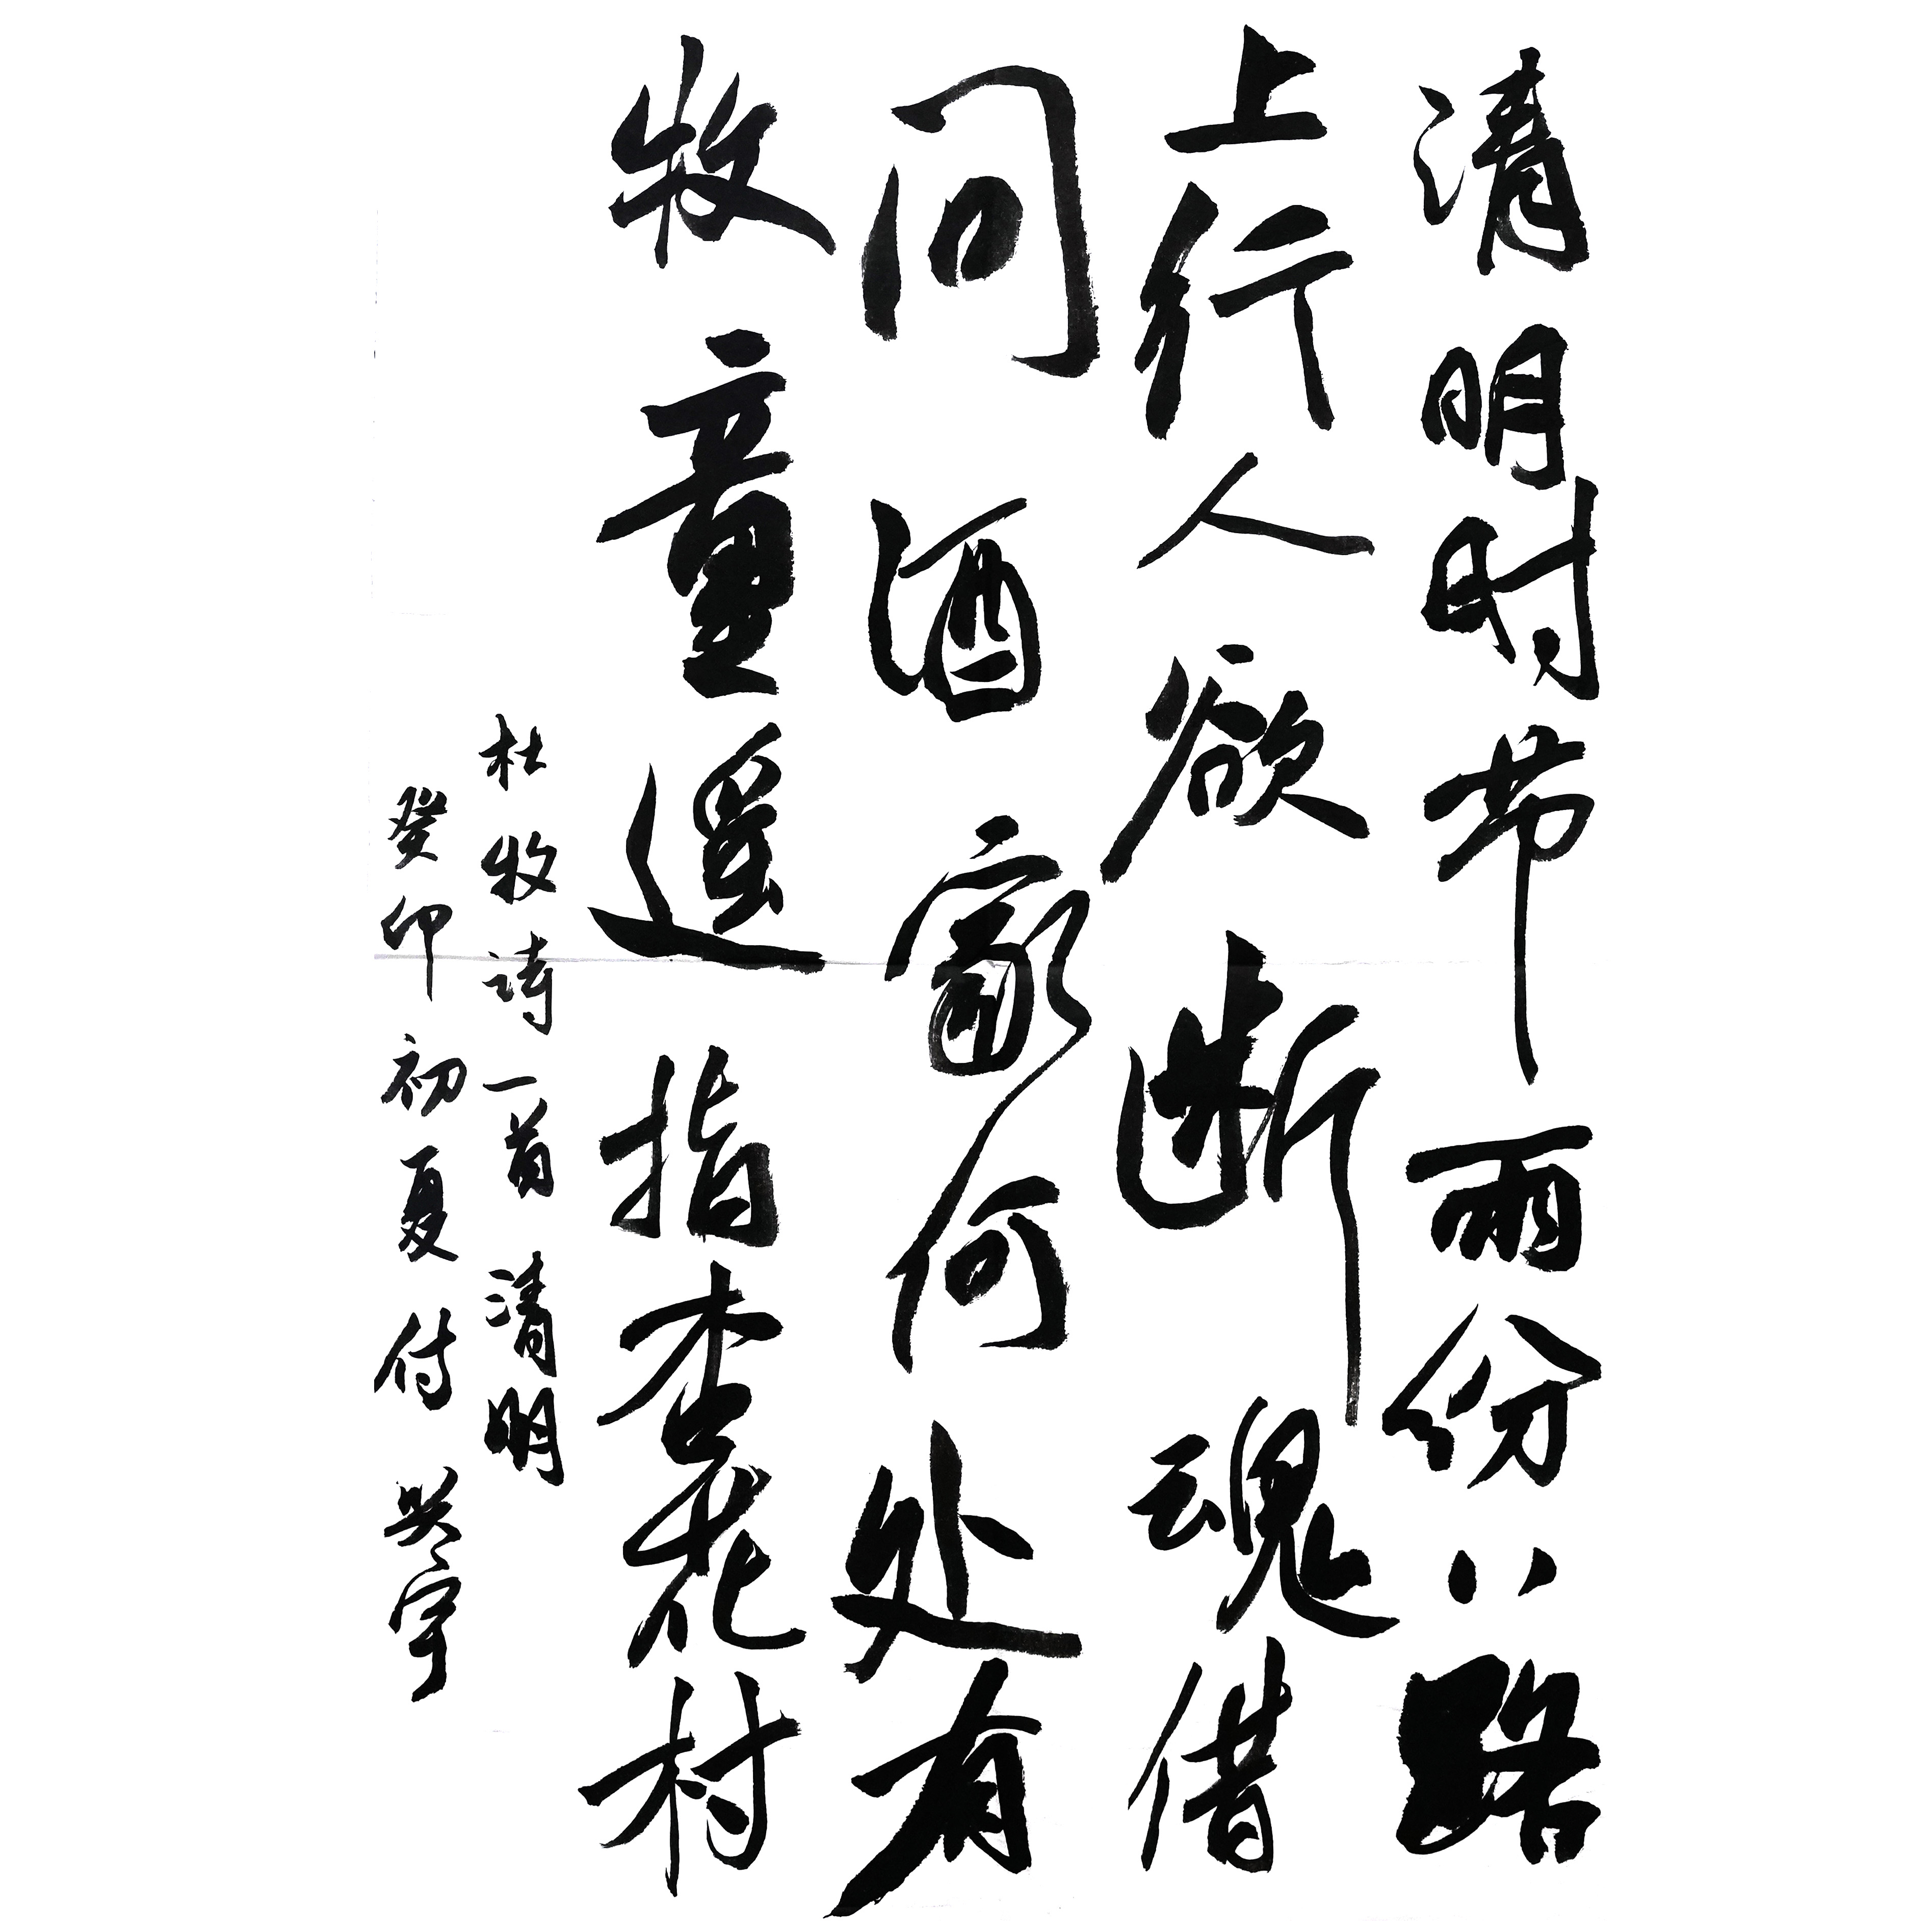 清明时节雨纷纷路
上行人欲断魂借
问酒家何处有
牧童遥指杏花村
杜牧诗一首清明
癸卯初夏付荣军